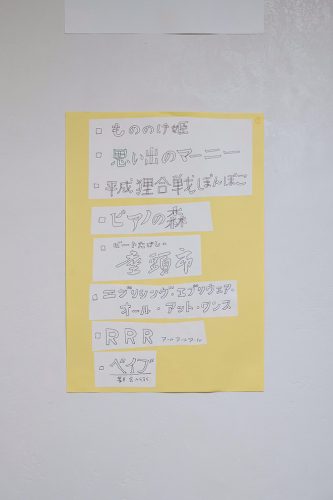 □ もののけ姫
□ 思い出のマーニー
□ 平成狸合戦ぽんぽこ
□ ピアノの森
□ ビートたけしの
座頭市
□ エブリシング・エブリウェア・
オール・アット・ワンス
□ RRR アールアールアール
□ ベイブ